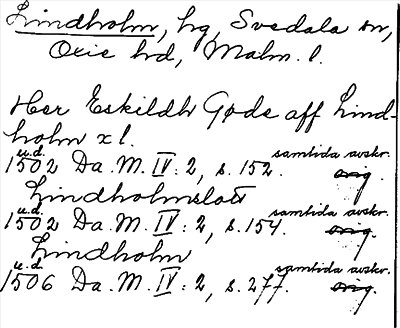 Lindholm, hg, Svedala sn,
Oxie hd, Malm. l.
Her Eskildh Gøde aff Lind-
holm x l.
u.d. samtida avskr.
1502 Da. M. IV: 2, s. 152. orig.
Lindholmslott
u.d. samtida avskr.
1502 Da. M. IV: 2, s. 154. orig.
Lindholm
u.d. samtida avskr.
1506 Da. M. IV: 2, s. 277. orig.